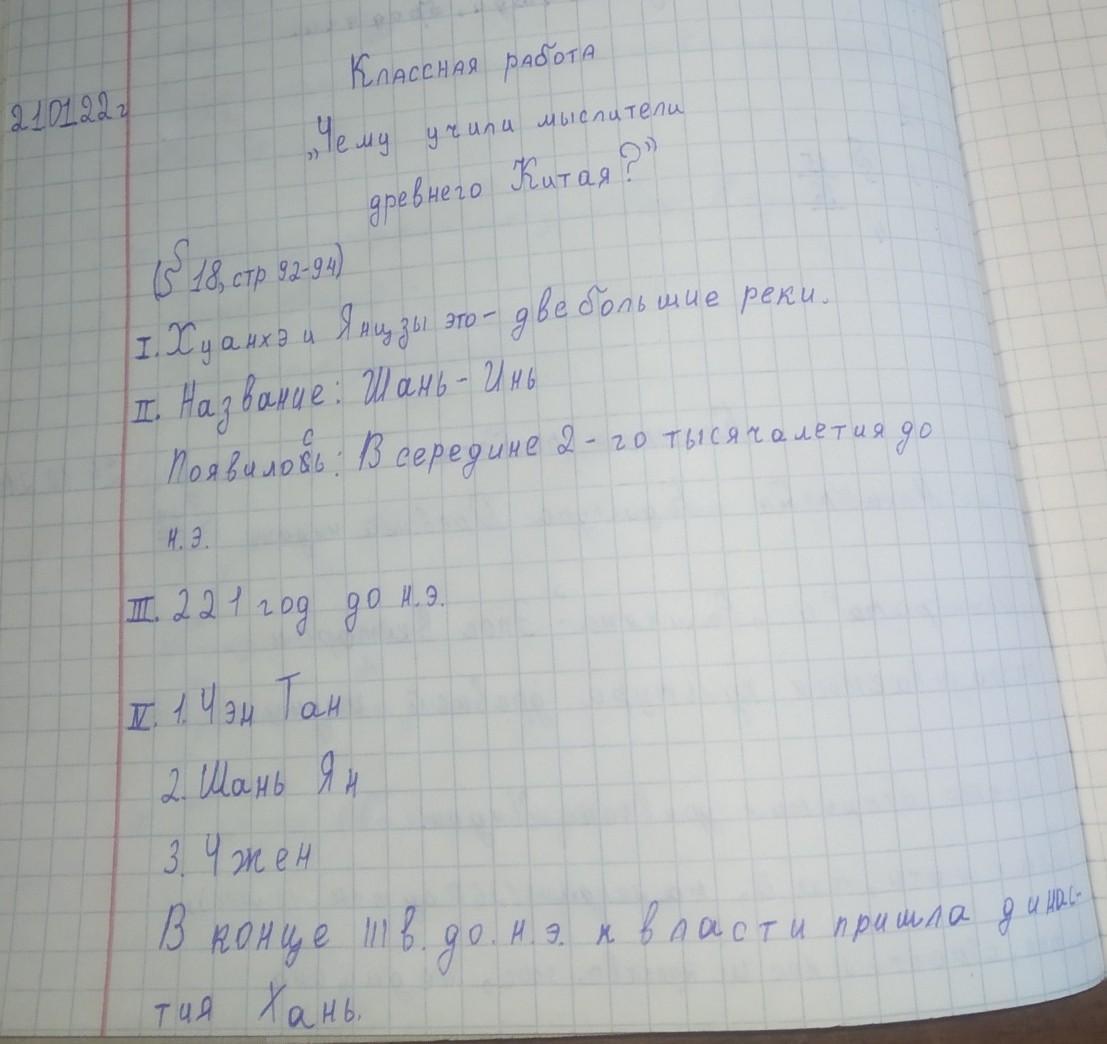 Классная работа
210122г
„Чему учили мыслители
древнего Китая?”
(§ 18, стр 92-94)
I. Хуанхэ и Янцзы это- две большие реки.
II. Название: Шань - Инь
Появилось: В середине 2 - го тысячалетия до
н.э.
III. 221 год до н.э.
IV. 1. Чэн Тан
2. Шань Ян
3. Чжен
В конце III в. до. н.э. к власти пришла динас-
тия Хань.